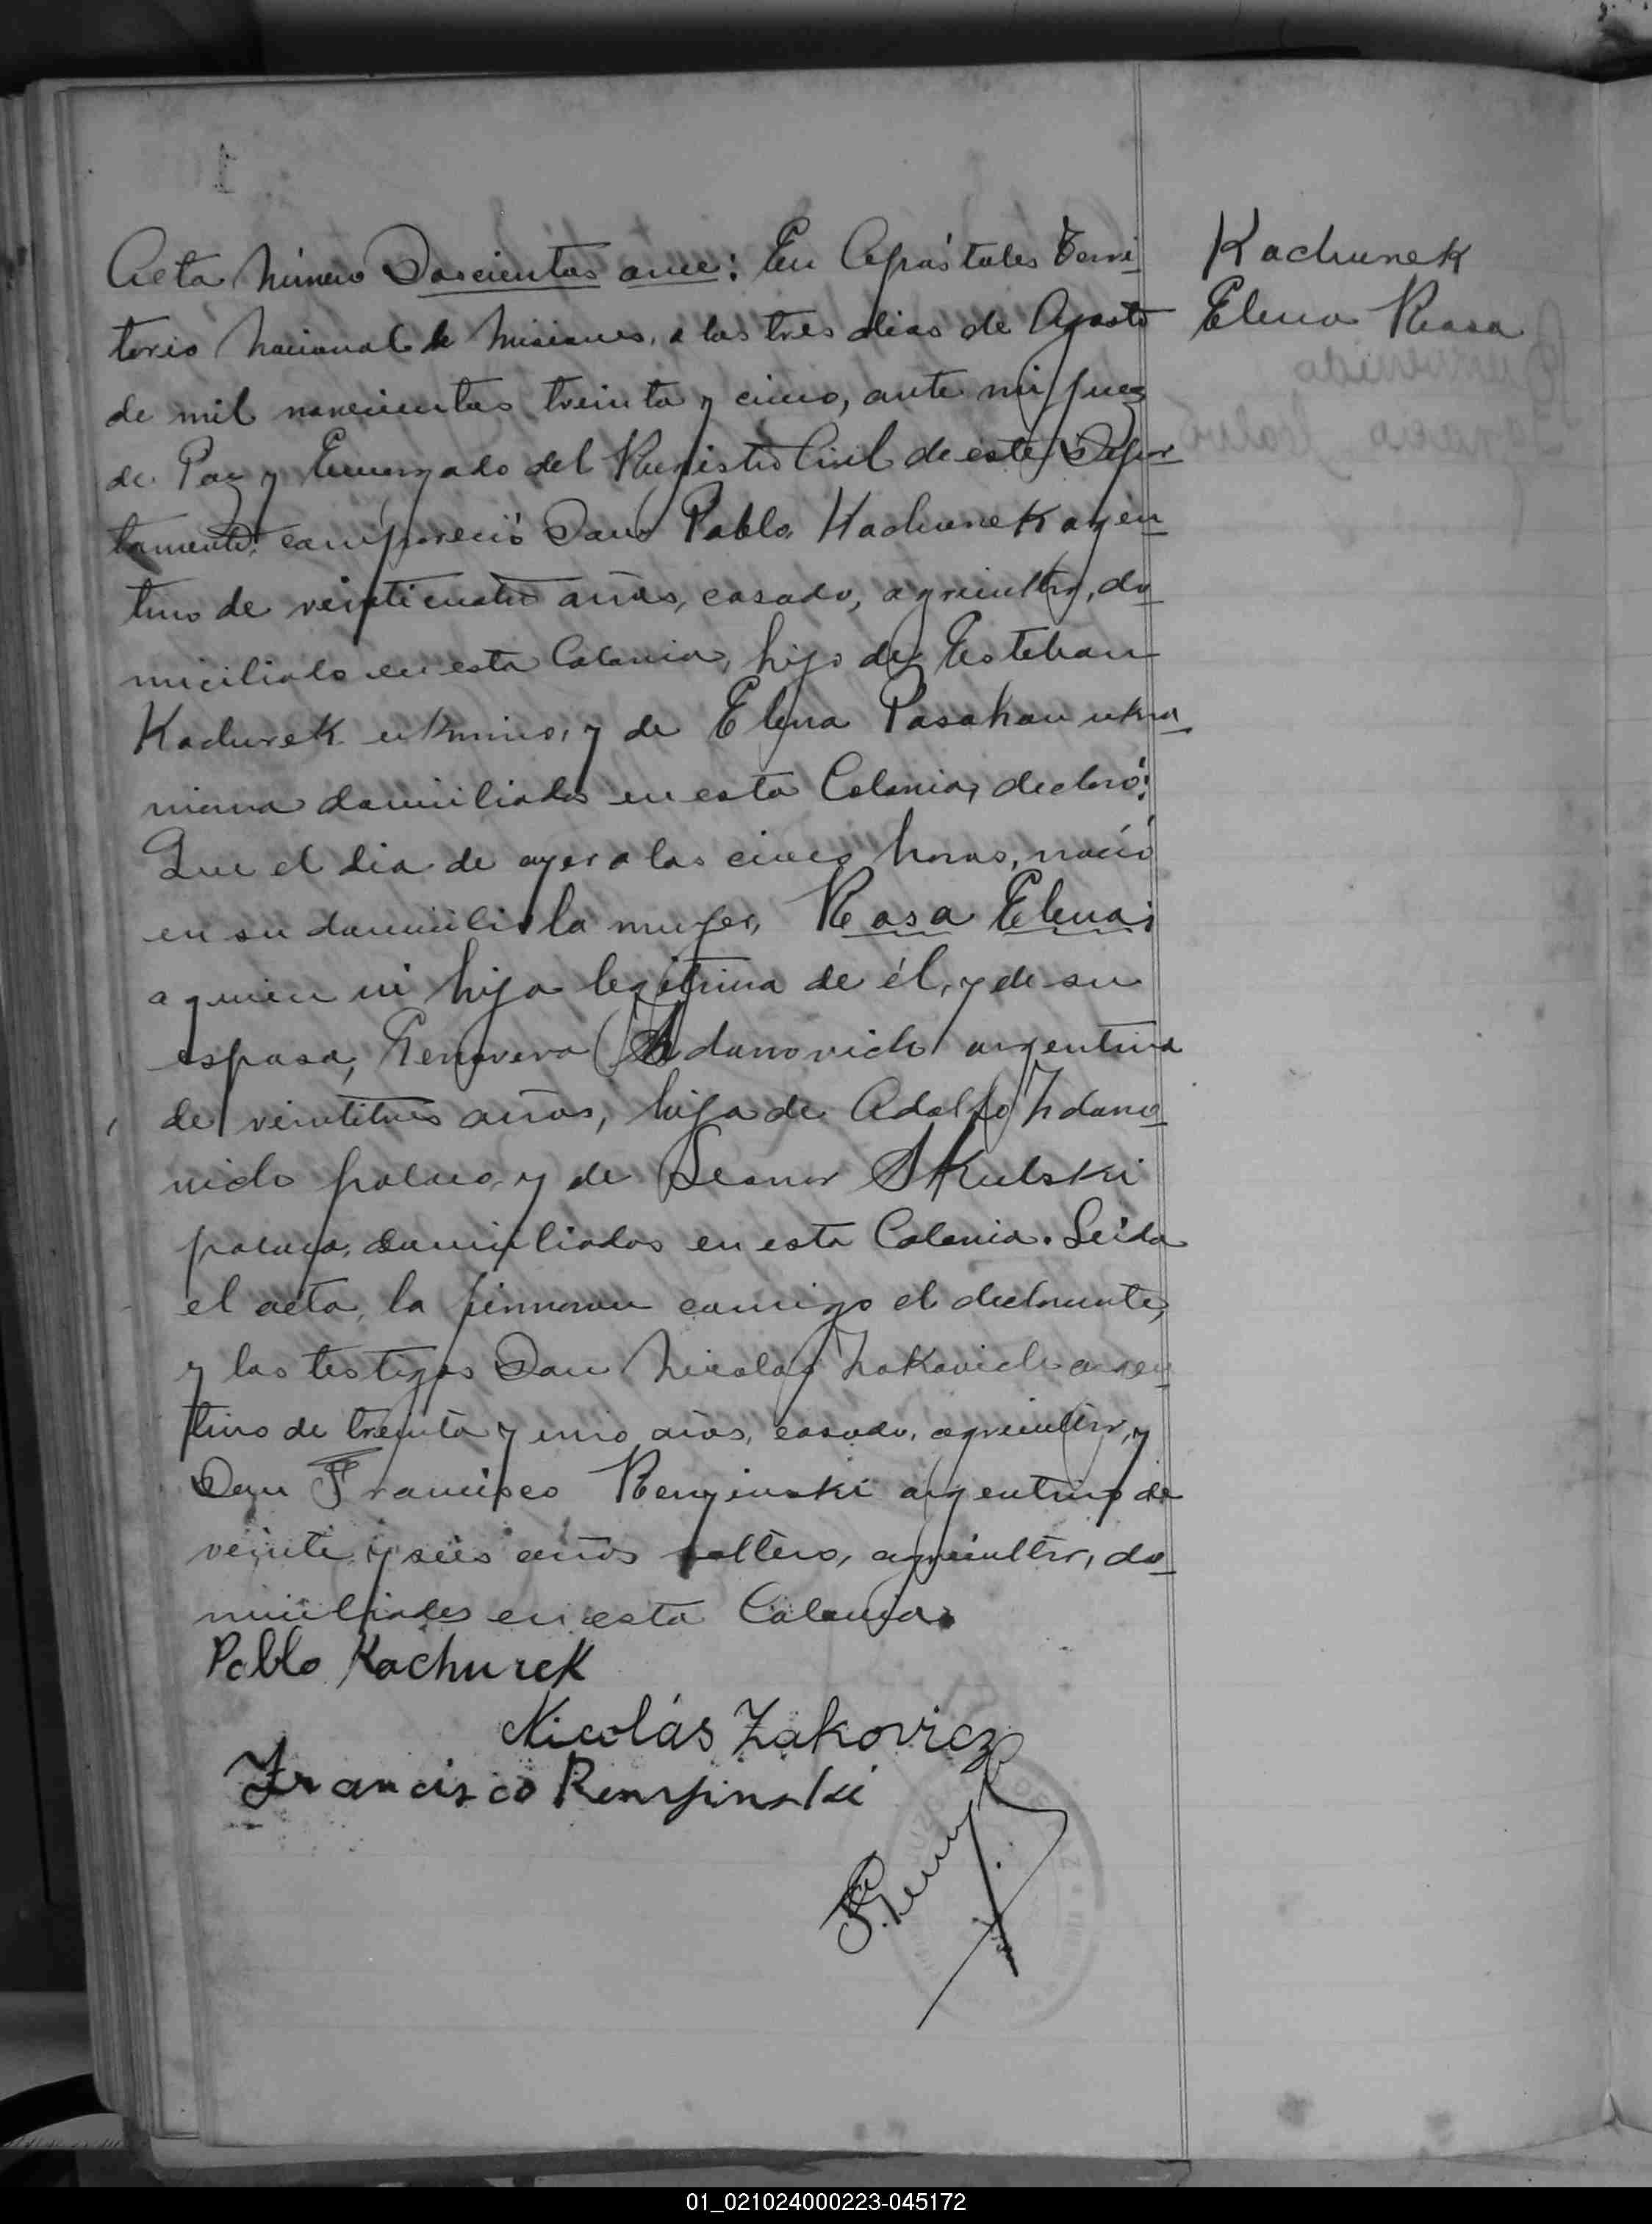 Acta número Doscientos once: En Apóstoles Terri-
torio Nacional de Misiones, a los tres dias de Agosto
de mil novecientos treinta y cinco, ante mi Juez
de Paz y Encargado del Registro Civil de este Depar-
tamento, compareció Don Pablo Kachurek argen-
tino de veinticuatro años, casado, agricultor, do-
miciliado en esta Colonia, hijo de Esteban
Kachurek ukranio, y de Elena Pasahan ukra-
niana domiciliados en esta Colonia, declaró:
Que el dia de ayer a las cinco horas, nació
en su domicilio la mujer, Rosa Elena;
a quien vi hija legitima de él, y de su
esposa, Genoveva Zdanovich argentina
de veintitres años, hija de Adolfo Zdano-
vich polaco, y de Leonor Skulski
polaca, domiciliados en esta Colonia. Leida
el acta, la firmaron conmigo el declarante,
y los testigos Don Nicolas Zakovich argen-
tino de treinta y uno años, casado, agricultor, y
Don Francisco Renyinski argentino de
veinte y seis años soltero, agricultor, do-
miciliados en esta Colonia.
Pablo Kachurek
Nicolás Zakovicz
Francisco Renyinski
Kachurek
Elena Rosa
01_021024000223-045172